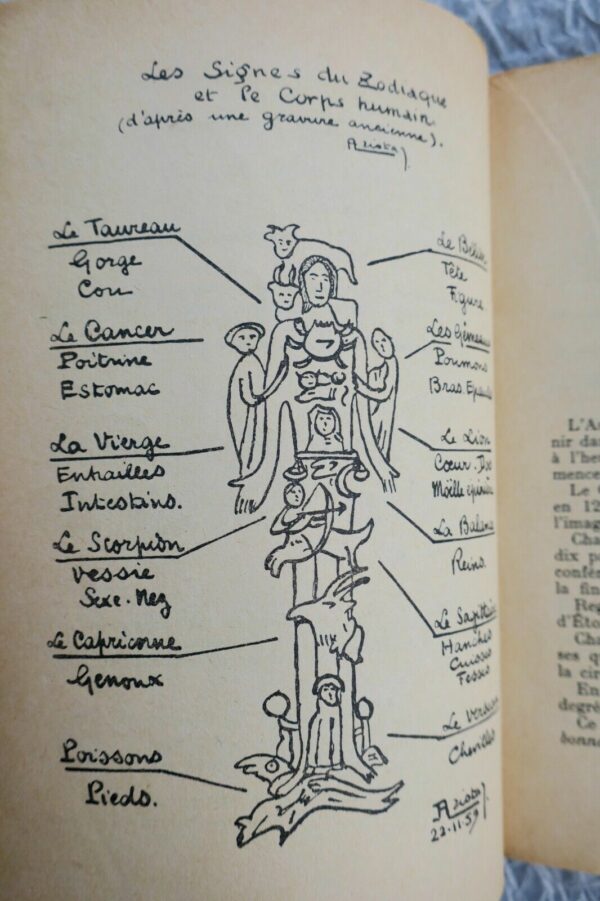 Les Signes du Zodiaque
et le Corps humain
(d'après une gravure ancienne).
Le Taureau
Gorge
Cou
Le Cancer
Poitrine
Estomac
La Vierge
Entrailles
Intestins.
Le Scorpion
Vessie
Sexe. Nez
Le Capricorne
Genoux
Poissons
Pieds.
Le
Tête
Figure
Les
Poumons
Bras
Le Lion
Coeur
Moëlle
La
Reins.
Le
Hanches
Cuisses
Fesses
Le
Chevilles
22.11.59
nir
à l'
Le
en 12
l'imag
Cha
dix
confér
la fin
Reg
d'Éto
Cha
ses q
la cir
En
degré
Ce
bonne